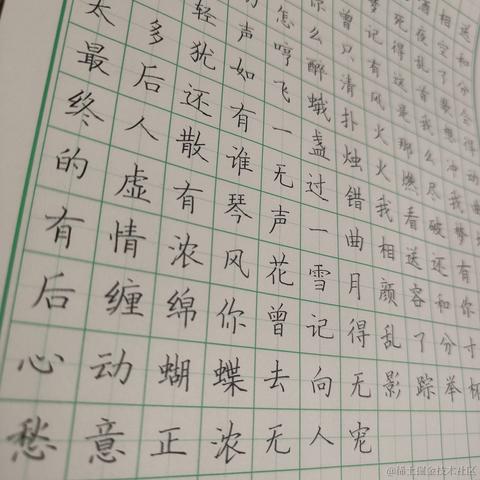 酒相送
死夜空和
你曾记得乱了分
怎么只有这首梦会
轻声哼醉清风是我想得
太多犹如飞蛾扑火那么冲动
最后还有一盏烛火燃尽我曲
终人散谁无过错我看破梦
的虚有琴声一曲相送还有
有情浓风花雪月颜容和你
后缠绵你曾记得乱了分寸
心动蝴蝶去向无影踪举杯
愁意正浓无人宠
@稀土掘金技术社区